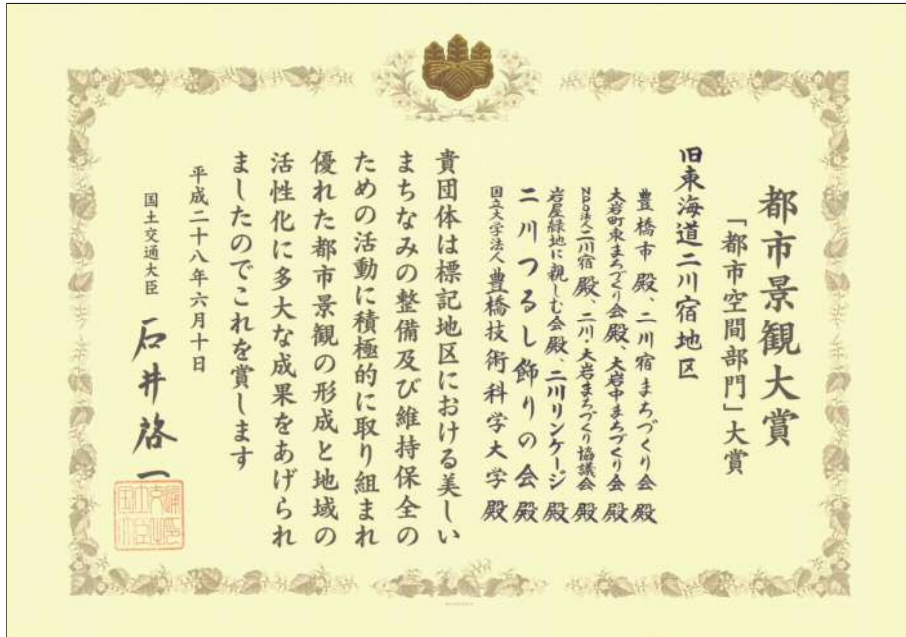 都市景観大賞
「都市空間部門」大賞
旧東海道二川宿地区
豊橋市 殿、二川宿まちづくり会 殿
大岩町東まちづくり会 殿、大岩中まちづくり会 殿
NPO法人二川宿 殿、二川・大岩まちづくり協議会 殿
岩屋緑地に親しむ会 殿、二川リンケージ 殿
二川つるし飾りの会 殿
国立大学法人豊橋技術科学大学 殿
貴団体は標記地区における美しい
まちなみの整備及び維持保全の
ための活動に積極的に取り組まれ
優れた都市景観の形成と地域の
活性化に多大な成果をあげられ
ましたのでこれを賞します
平成二十八年六月十日
国土交通大臣 石井啓一